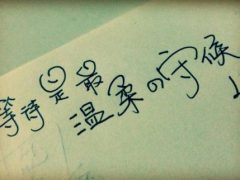 等待是最
温柔の守候